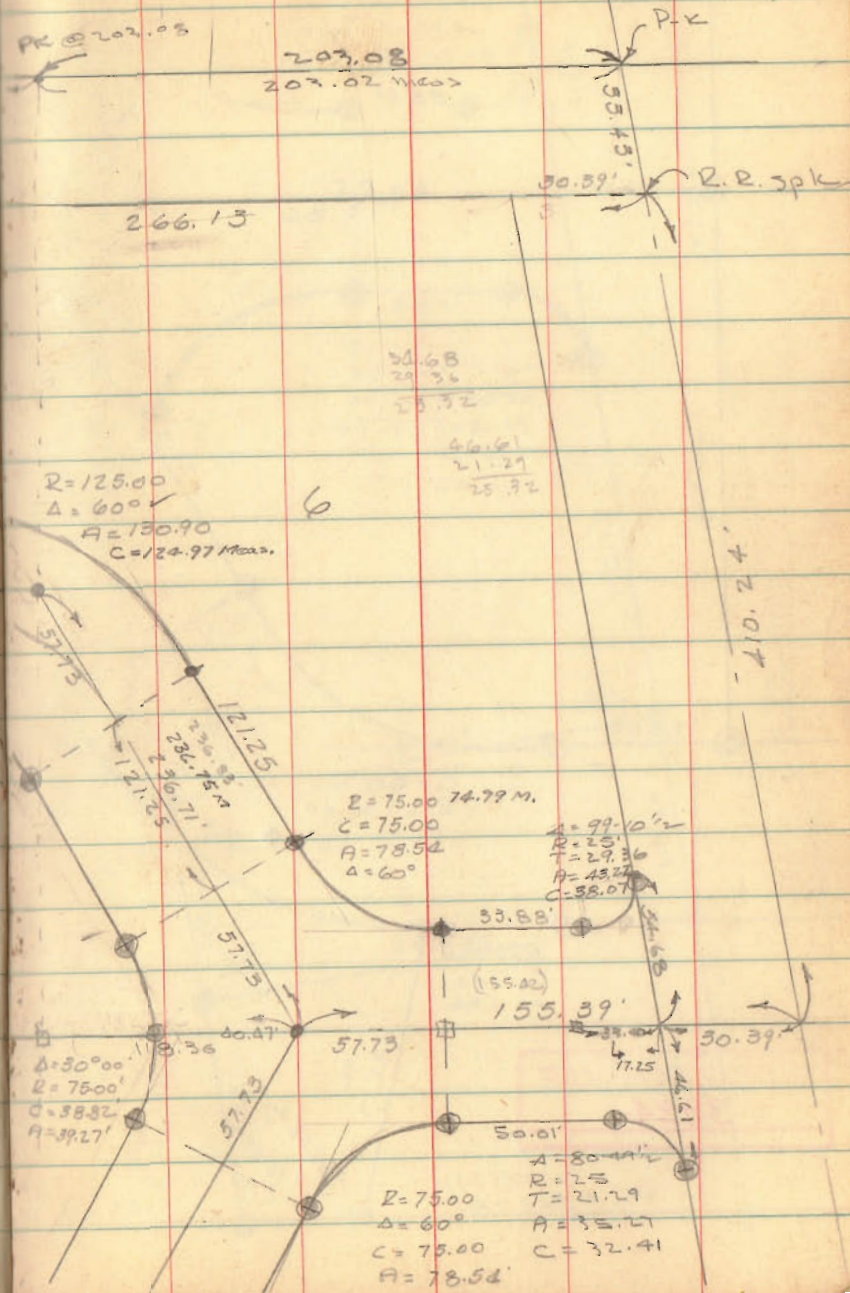 PK @ 203.08
P-K
203.08
203.02 meas
55.43'
30.39'
R.R. spk
266.13
54.68
29.36
25.32
46.61
21.29
25.32
R=125.00
Δ = 60° ✓
A = 130.90
C=124.97 Meas.
6
410.24
57.73
121.25
236.75 M
236.71'
121.25
R = 75.00 74.99 M.
C = 75.00
A = 78.54
Δ = 60°
Δ = 99-10'½
R = 25'
T = 29.36
A = 43.27
C = 38.07
33.88'
54.68
57.73
(155.42)
155.39'
8.36
40.47'
57.73
30.39'
17.25
46.61
Δ=30°00'
R = 75.00'
C = 38.82'
A = 39.27'
57.73
50.01'
Δ = 80-49'½
R = 25
T = 21.29
A = 35.27
C = 32.41
R = 75.00
Δ = 60°
C = 75.00
A = 78.54'